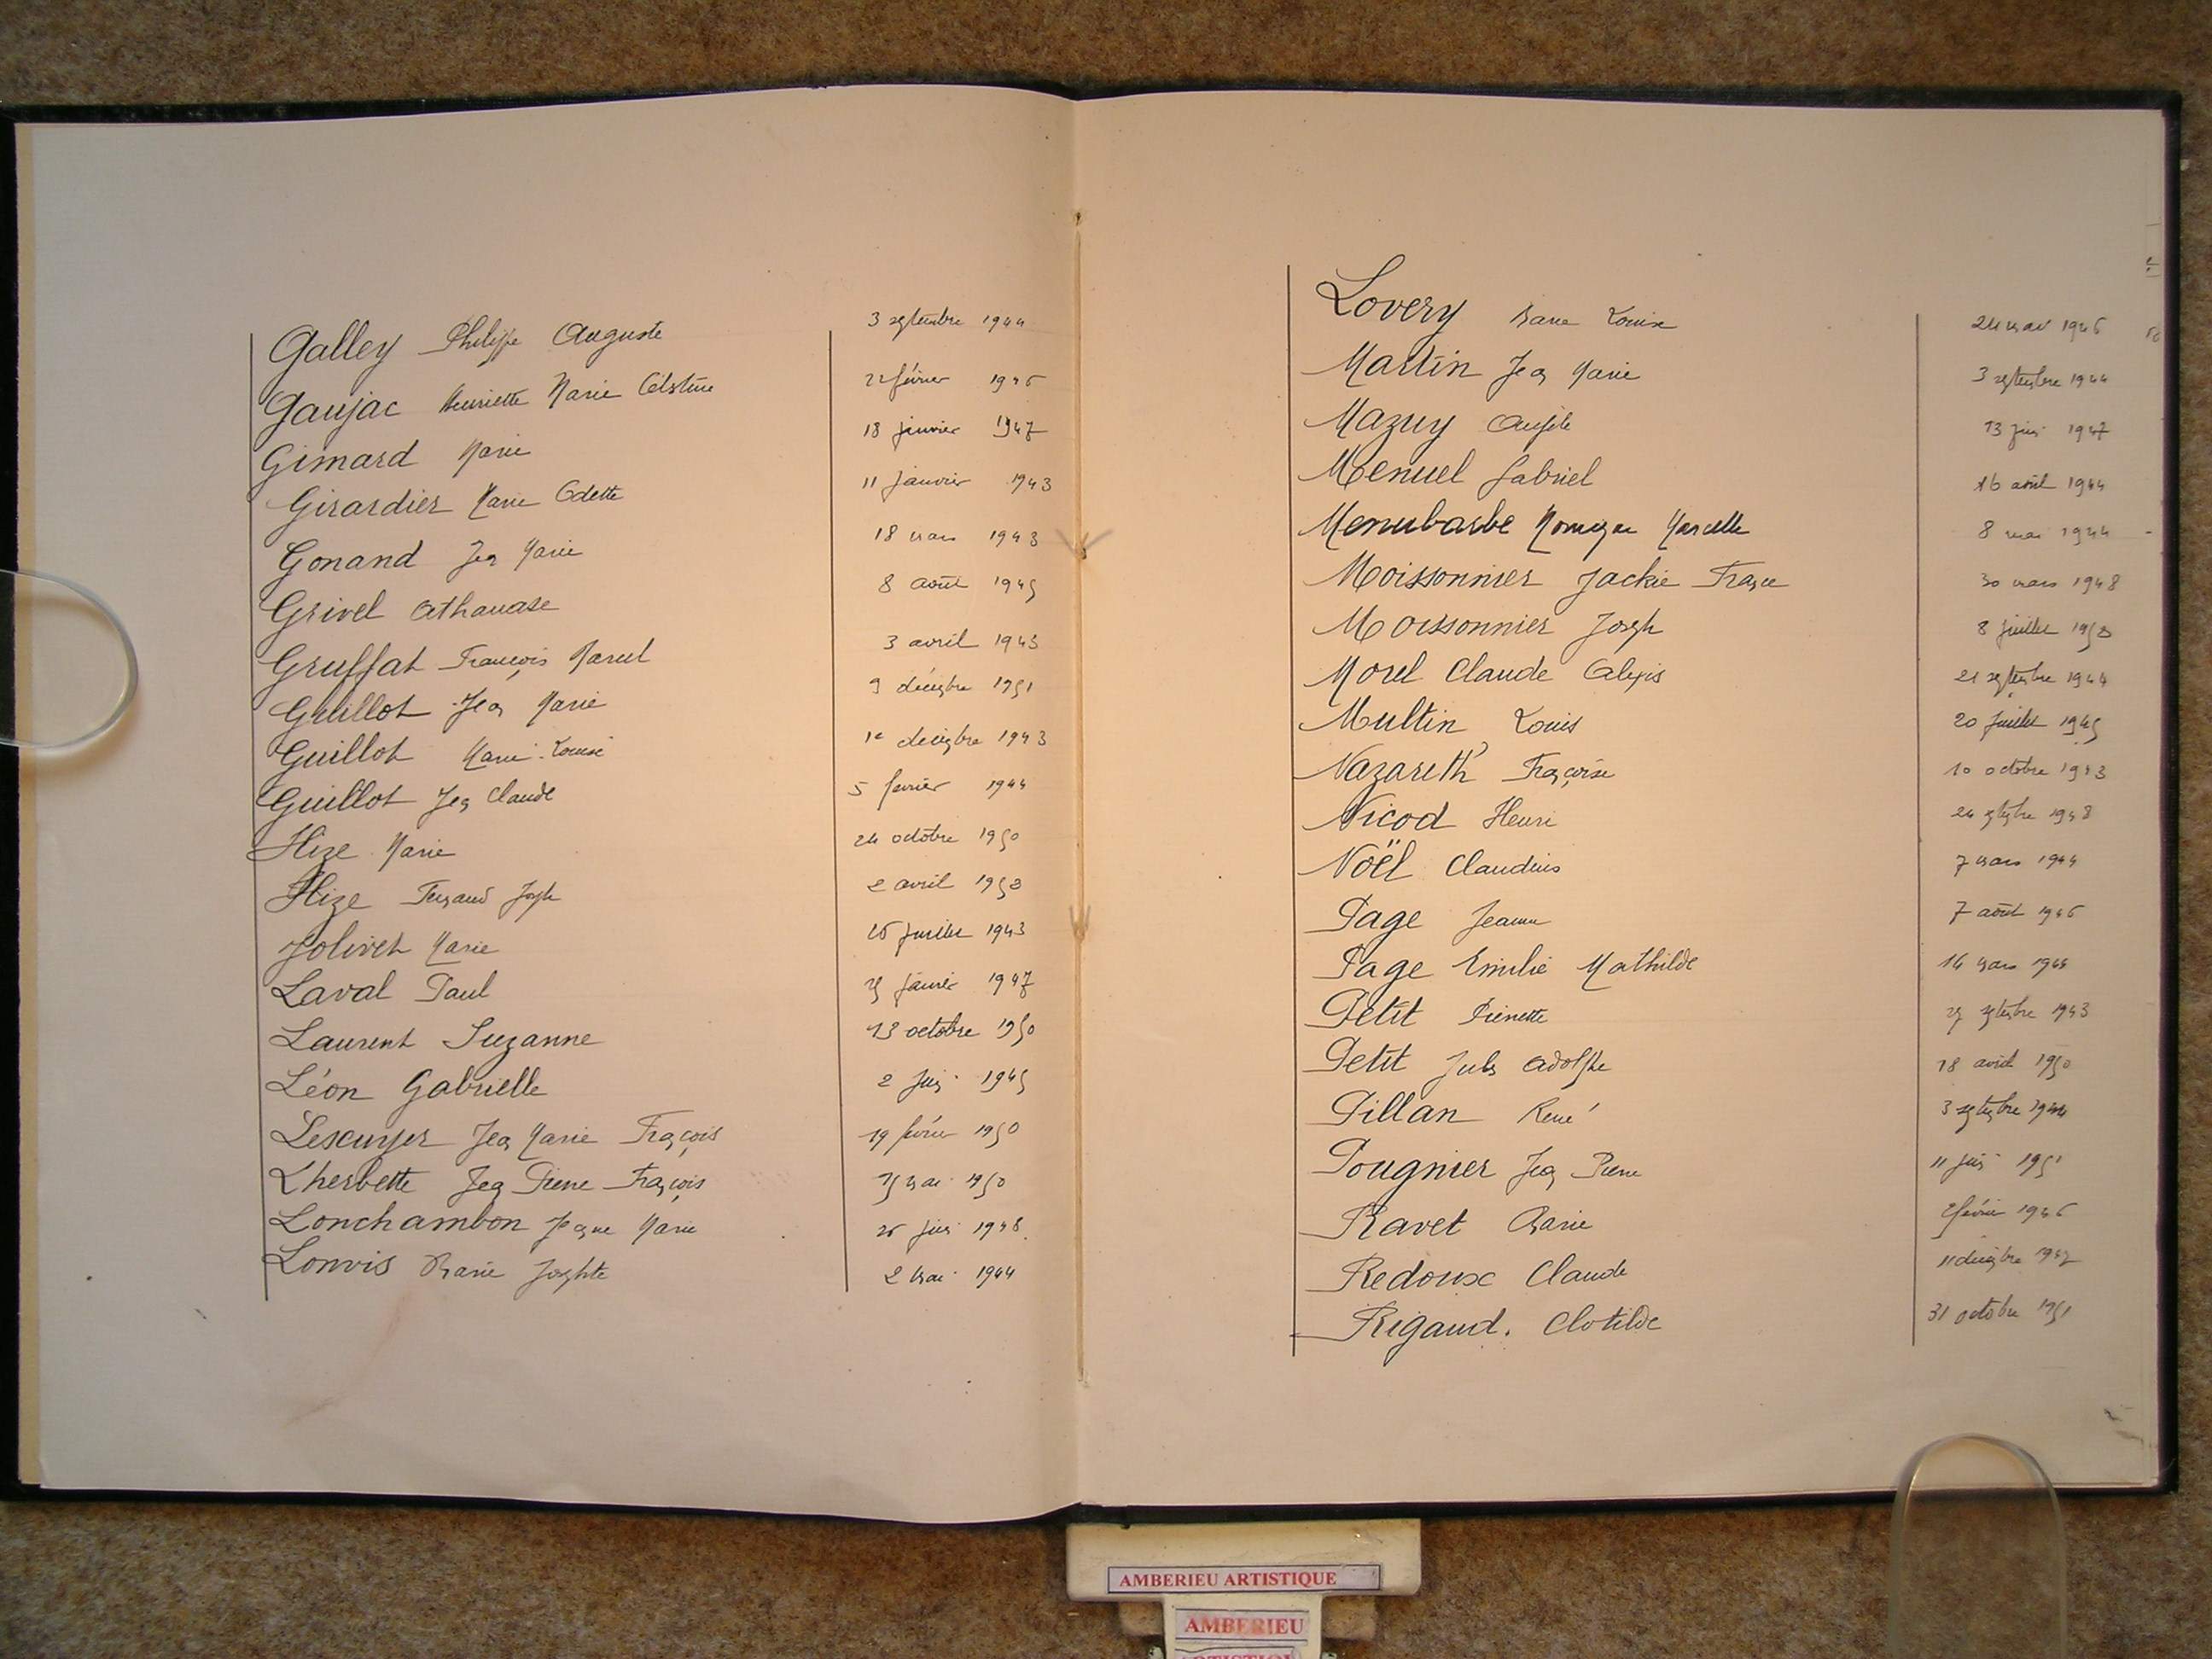 Galley Philippe Auguste 3 septembre 1944
Gaujac Henriette Marie Célestine 22 février 1946
Gimard Marie 18 janvier 1947
Girardier Marie Odette 11 janvier 1943
Gonand Jean Marie 18 mars 1943
Grivel Athanase 8 août 1945
Gruffat François Marcel 3 avril 1943
Guillot Jean Marie 9 décembre 1951
Guillot Marie-Louise 1e décembre 1943
Guillot Jean Claude 5 février 1944
Hize Marie 24 octobre 1950
Hize Fernand Joseph 2 avril
Jolivet Marie juillet 1943
Laval Paul janvier 1947
Laurent Suzanne 13 octobre 1950
Léon Gabrielle 2 juin 1945
Lescuyer Jean Marie François 19 février 1950
Lherbette Jean Pierre François mai 1950
Lonchambon Jeanne Marie juin 1948
Lonvis Marie Josephte 2 mai 1944
Lovery Marie Louise 24 mai 1946
Martin Jean Marie 3 septembre 1944
Mazuy Angèle 13 juin 1947
Menuel Gabriel 16 avril 1944
Menubarbe Marcelle 8 mai 1944
Moissonnier Jackie France 30 mars 1948
Moissonnier Joseph 8 juillet
Morel Claude Alexis 21 septembre 1944
Multin Louis 20 juillet 1945
Nazareth Françoise 10 octobre 1943
Nicod Henri 24 septembre 1948
Noël Claudius 7 mars 1944
Page Jeanne 7 août 1946
Page Emilie Mathilde 14 mars
Petit Pierrette septembre 1943
Petit Jules Adolphe 18 avril 1950
Pillan René 3 septembre 1944
Pougnier Jean Pierre 11 juin 1951
Ravet Marie 2 février 1946
Redoux Claude 11 décembre 1947
Rigaud. Clotilde 31 octobre 1951
AMBERIEU ARTISTIQUE
AMBERIEU